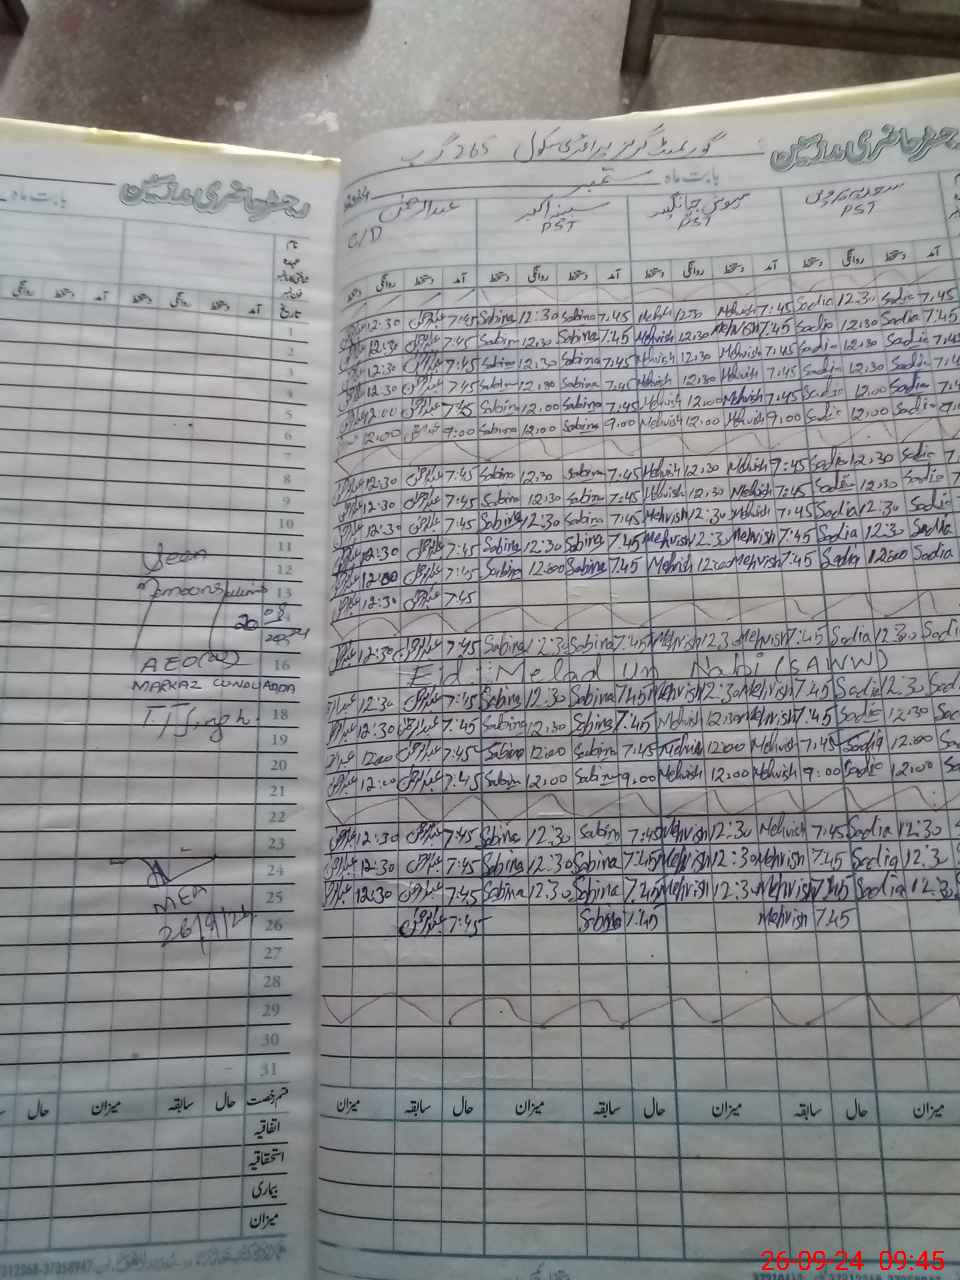 رجسٹر حاضری مدرسین
گورنمنٹ گرلز پرائمری سکول 265 گ ب
بابت ماہ ستمبر 2024
سعدیہ پروین PST
مہوش جہانگیر PST
سبینہ اکبر PST
عبدالرحمن C/D
آمد دستخط روانگی دستخط آمد دستخط روانگی دستخط آمد دستخط روانگی دستخط آمد دستخط روانگی دستخط
12:30 7:45 Sabina 12:30 Sabina 7:45 Mehvish 12:30 Mehvish 7:45 Sadia 12:30 Sadia 7:45
12:30 7:45 Sabina 12:30 Sabina 7:45 Mehvish 12:30 Mehvish 7:45 Sadia 12:30 Sadia 7:45
12:30 7:45 Sabina 12:30 Sabina 7:45 Mehvish 12:30 Mehvish 7:45 Sadia 12:30 Sadia 7:45
12:30 7:45 Sabina 12:30 Sabina 7:45 Mehvish 12:30 Mehvish 7:45 Sadia 12:30 Sadia 7:45
12:00 7:45 Sabina 12:00 Sabina 7:45 Mehvish 12:00 Mehvish 7:45 Sadia 12:00 Sadia 7:45
12:00 9:00 Sabina 12:00 Sabina 9:00 Mehvish 12:00 Mehvish 9:00 Sadia 12:00 Sadia 9:0
12:30 7:45 Sabina 12:30 Sabina 7:45 Mehvish 12:30 Mehvish 7:45 Sadia 12:30 Sadia 7
12:30 7:45 Sabina 12:30 Sabina 7:45 Mehvish 12:30 Mehvish 7:45 Sadia 12:30 Sadia 7
12:30 7:45 Sabina 12:30 Sabina 7:45 Mehvish 12:30 Mehvish 7:45 Sadia 12:30 Sadia
12:30 7:45 Sabina 12:30 Sabina 7:45 Mehvish 12:30 Mehvish 7:45 Sadia 12:30 Sadia
12:00 7:45 Sabina 12:00 Sabina 7:45 Mehvish 12:00 Mehvish 7:45 Sadia 12:00 Sadia
12:30 7:45
12:30 7:45 Sabina 12:30 Sabina 7:45 Mehvish 12:30 Mehvish 7:45 Sadia 12:30 Sadi
Eid Melad un Nabi (SAWW)
12:30 7:45 Sabina 12:30 Sabina 7:45 Mehvish 12:30 Mehvish 7:45 Sadia 12:30 Sad
12:30 7:45 Sabina 12:30 Sabina 7:45 Mehvish 12:30 Mehvish 7:45 Sadia 12:30 Sad
12:00 7:45 Sabina 12:00 Sabina 7:45 Mehvish 12:00 Mehvish 7:45 Sadia 12:00 Sa
12:00 7:45 Sabina 12:00 Sabina 9:00 Mehvish 12:00 Mehvish 9:00 Sadia 12:00 Sa
12:30 7:45 Sabina 12:30 Sabina 7:45 Mehvish 12:30 Mehvish 7:45 Sadia 12:30
12:30 7:45 Sabina 12:30 Sabina 7:45 Mehvish 12:30 Mehvish 7:45 Sadia 12:30
12:30 7:45 Sabina 12:30 Sabina 7:45 Mehvish 12:30 Mehvish 7:45 Sadia 12:30
7:45 Sabina 7:45 Mehvish 7:45
حال سابقہ میزان حال سابقہ میزان حال سابقہ میزان
رجسٹر حاضری مدرسین
بابت ماہ
تاریخ آمد دستخط روانگی دستخط آمد دستخط روانگی
1
2
3
4
5
6
7
8
9
10
11
12
13
16
18
19
20
21
22
23
24
25
26
27
28
29
30
31
Seen
20
AEO(W)
MARKAZ
T.T Singh.
MEA
26/9/24
قسم رخصت حال سابقہ میزان حال
اتفاقیہ
استحقاقیہ
بیماری
میزان
26-09-24 09:45